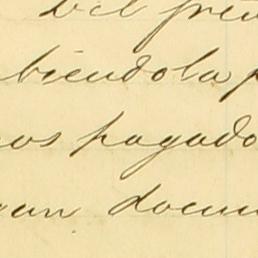 Del pre
biendola p
os pagado
an docum